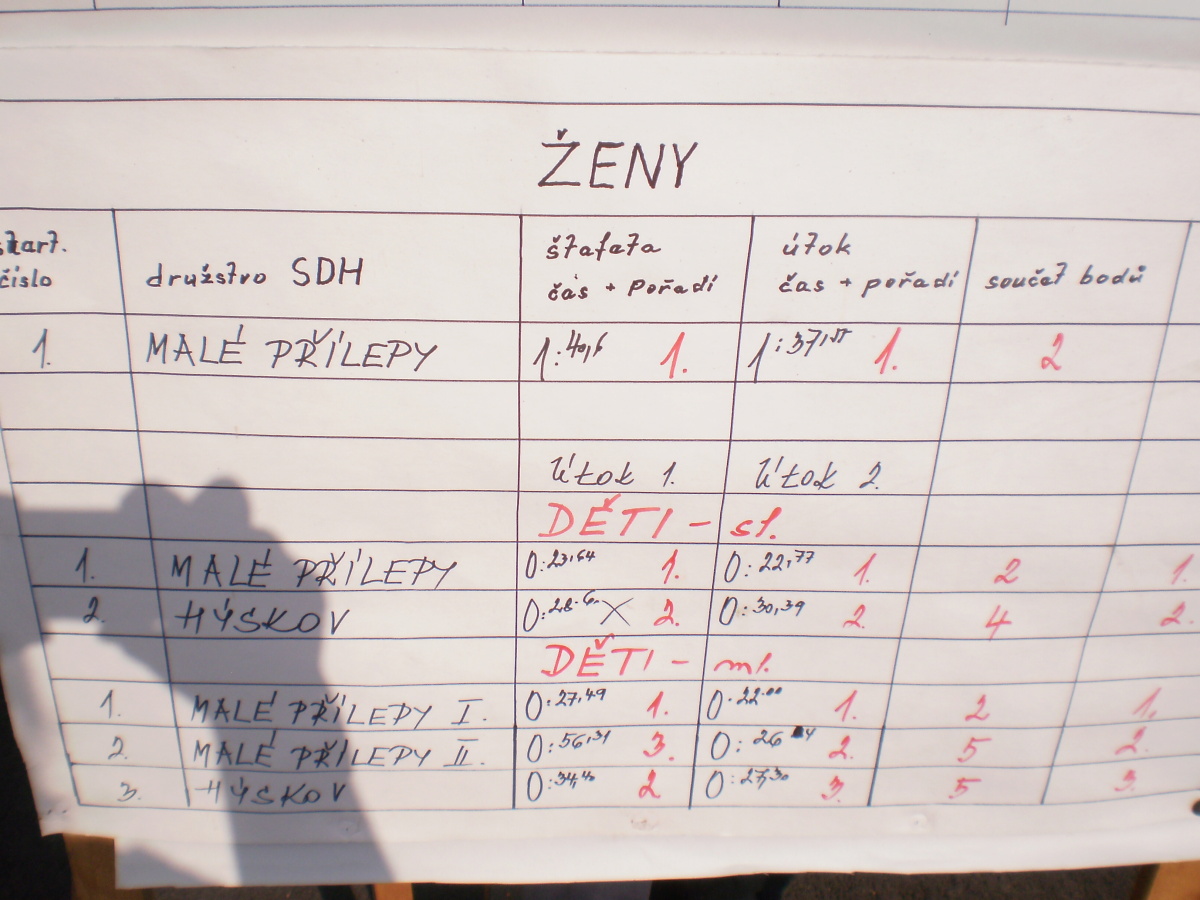 ŽENY
start. číslo družstvo SDH štafeta čas + pořadí útok čas + pořadí součet bodů
1. MALÉ PŘÍLEPY 1:40,6 1. 1:37,55 1. 2
Útok 1. Útok 2.
DĚTI - st.
1. MALÉ PŘÍLEPY 0:23,64 1. 0:22,77 1. 2 1.
2. HÝSKOV 0:28.6. X 2. 0:30,39 2. 4 2.
DĚTI - ml.
1. MALÉ PŘÍLEPY I. 0:27,49 1. 0:22.00 1. 2 1.
2. MALÉ PŘÍLEPY II. 0:56,31 3. 0:26 2. 5 2.
3. HÝSKOV 0:34,40 2 0:27,30 3. 5 3.